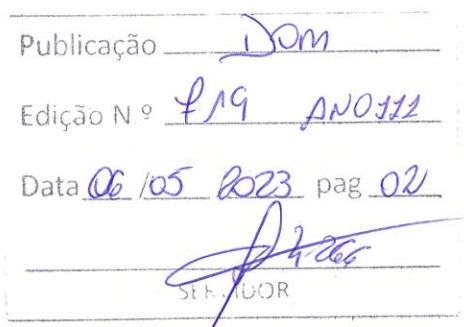 Publicação DOM
Edição N.º 719 ANO III
Data 06/05 2023 pag 02
SERVIDOR